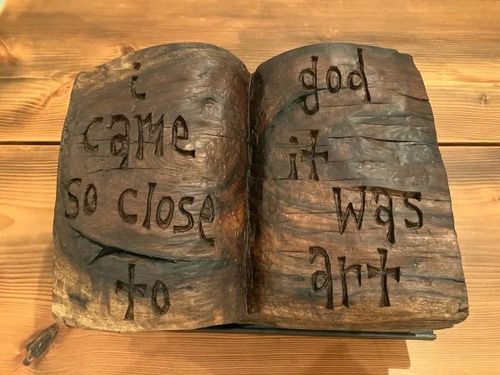 i
came
so close
to
god
it
was
art